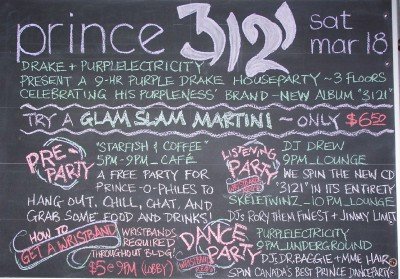 prince 3121 sat mar 18
DRAKE + PURPLELECTRICITY
PRESENT A 9-HR PURPLE DRAKE HOUSEPARTY ~ 3 FLOORS
CELEBRATING HIS PURPLENESS' BRAND-NEW ALBUM "3121"
TRY A GLAM SLAM MARTINI ~ ONLY $6.50
PRE PARTY
"STARFISH & COFFEE"
5PM-9PM_CAFÉ
A FREE PARTY FOR
PRINCE-O-PHILES TO
HANG OUT, CHILL, CHAT, AND
GRAB SOME FOOD AND DRINKS!
HOW TO GET A WRISTBAND
WRISTBANDS
REQUIRED
THROUGHOUT BLDG.
$5 @ 9PM (LOBBY)
LISTENING PARTY
DJ DREW
9PM_LOUNGE
WE SPIN THE NEW CD
"3121" IN ITS ENTIRETY
SKELETWINZ_10PM_LOUNGE
DJs RORY THEM FINEST + JIMMY LIMIT
DANCE PARTY
PURPLELECTRICITY
9PM_UNDERGROUND
DJs DR.BAGGIE + MME HAIR
SPIN CANADA'S BEST PRINCE DANCE PARTY